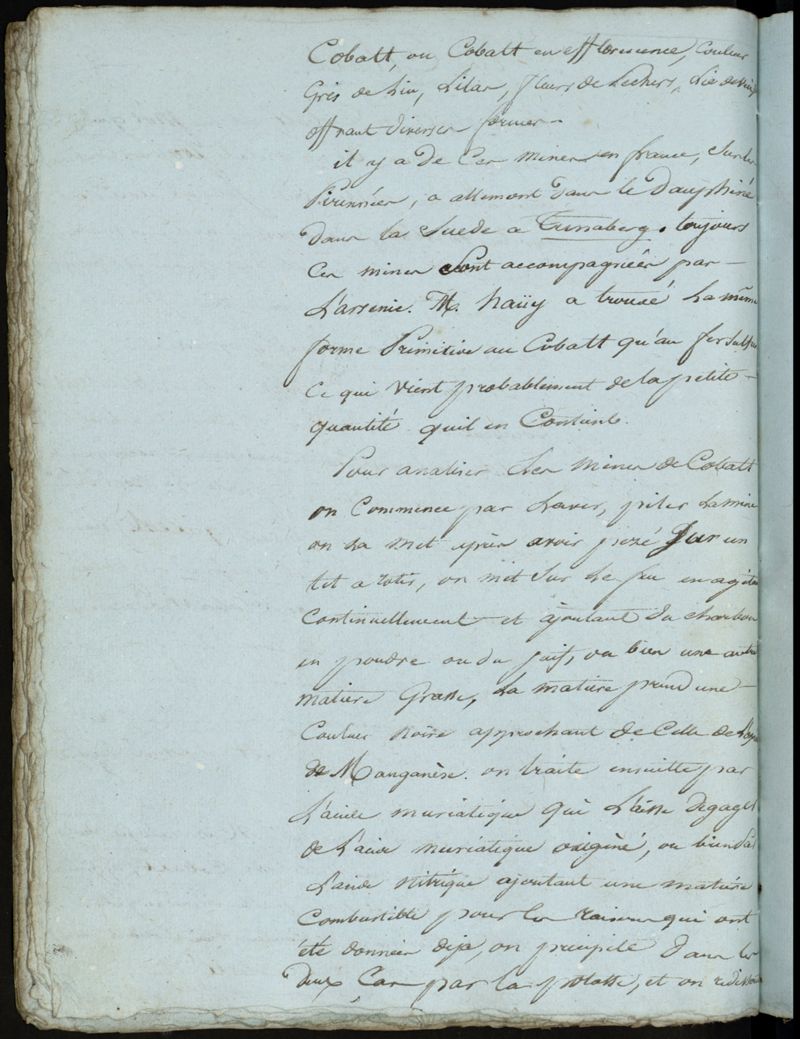 Cobalt, ou Cobalt en efflorescence, Couleur
Gris de Lin, Lilas, fleurs de Pechers, Lie de vin
offrant diverses formes —
il y a de Ces mines en france, Sur les
Pirennées, a allemont dans le Dauphiné
dans la Suede a Tunaberg. toujours
Ces mines sont accompagnées par —
L'arsenic. M. haüy a trouvé La même
forme Primitive au Cobalt qu'au fer
Ce qui vient probablement de la petite —
quantité quil en Contient.
Pour analiser Les mines de Cobalt
on Commence par Laver, piler La mine
on La met après avoir pezé Sur un
tet a rotir, on met Sur Le feu en agitant
Continuellement et ajoutant du charbon
en poudre ou du suif, ou bien une autre
matiere Grasse, La matiere prend une —
Couleur noire approchant de Celle de
de Manganèse. on traite ensuitte par
L'acide muriatique qui Laisse degager
de L'acide muriatique oxigèné, ou bien
L'acide nitrique ajoutant une matiére
Combustible pour les raisons qui ont
été données deja, on precipite dans les
deux Cas par la potasse, et on